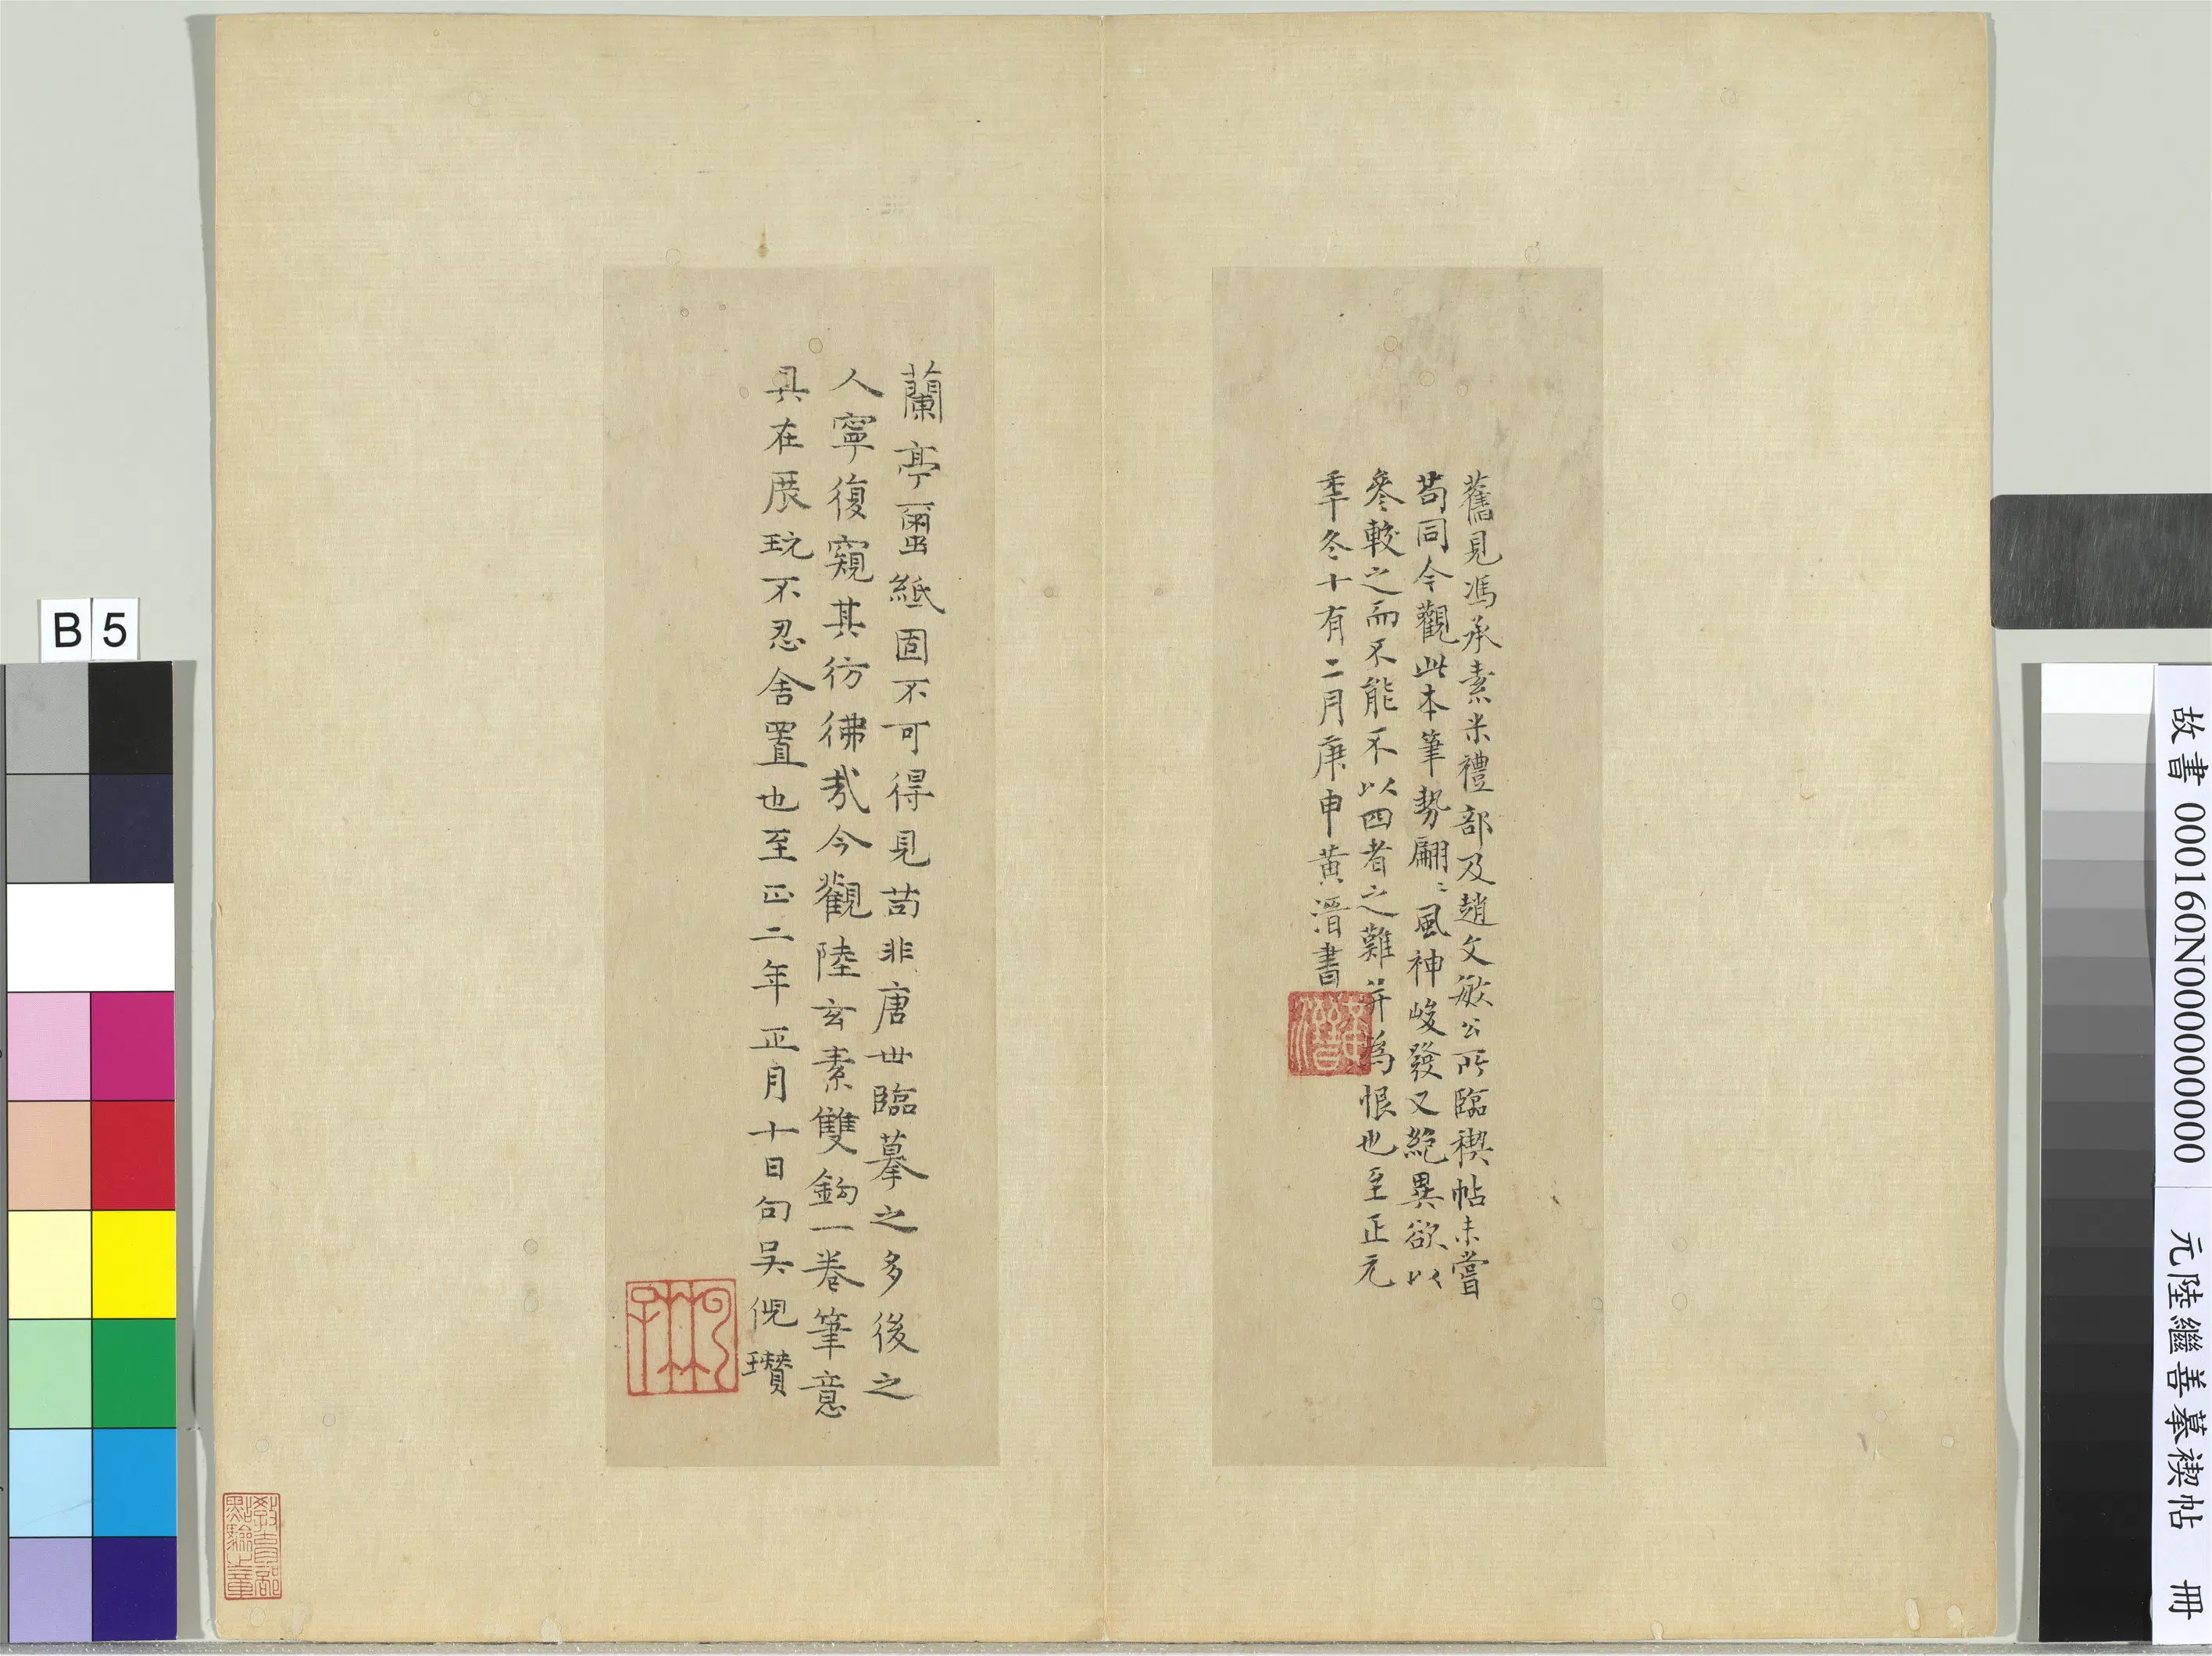 舊見馮承素米禮部及趙文敏公所臨禊帖未嘗
苟同今觀此本筆勢翩〻風神峻發又絕異欲以
參較之而不能不以四者之難并為恨也至正元
季冬十有二月庚申黃溍書
黃溍
蘭亭璽紙固不可得見苟非唐世臨摹之多後之
人寧復窺其彷彿哉今觀陸玄素雙鈎一卷筆意
具在展玩不忍舍置也至正二年正月十日句吳倪瓚
教育部
點驗之章
B 5
故書 000160N000000000 元陸繼善摹禊帖 冊